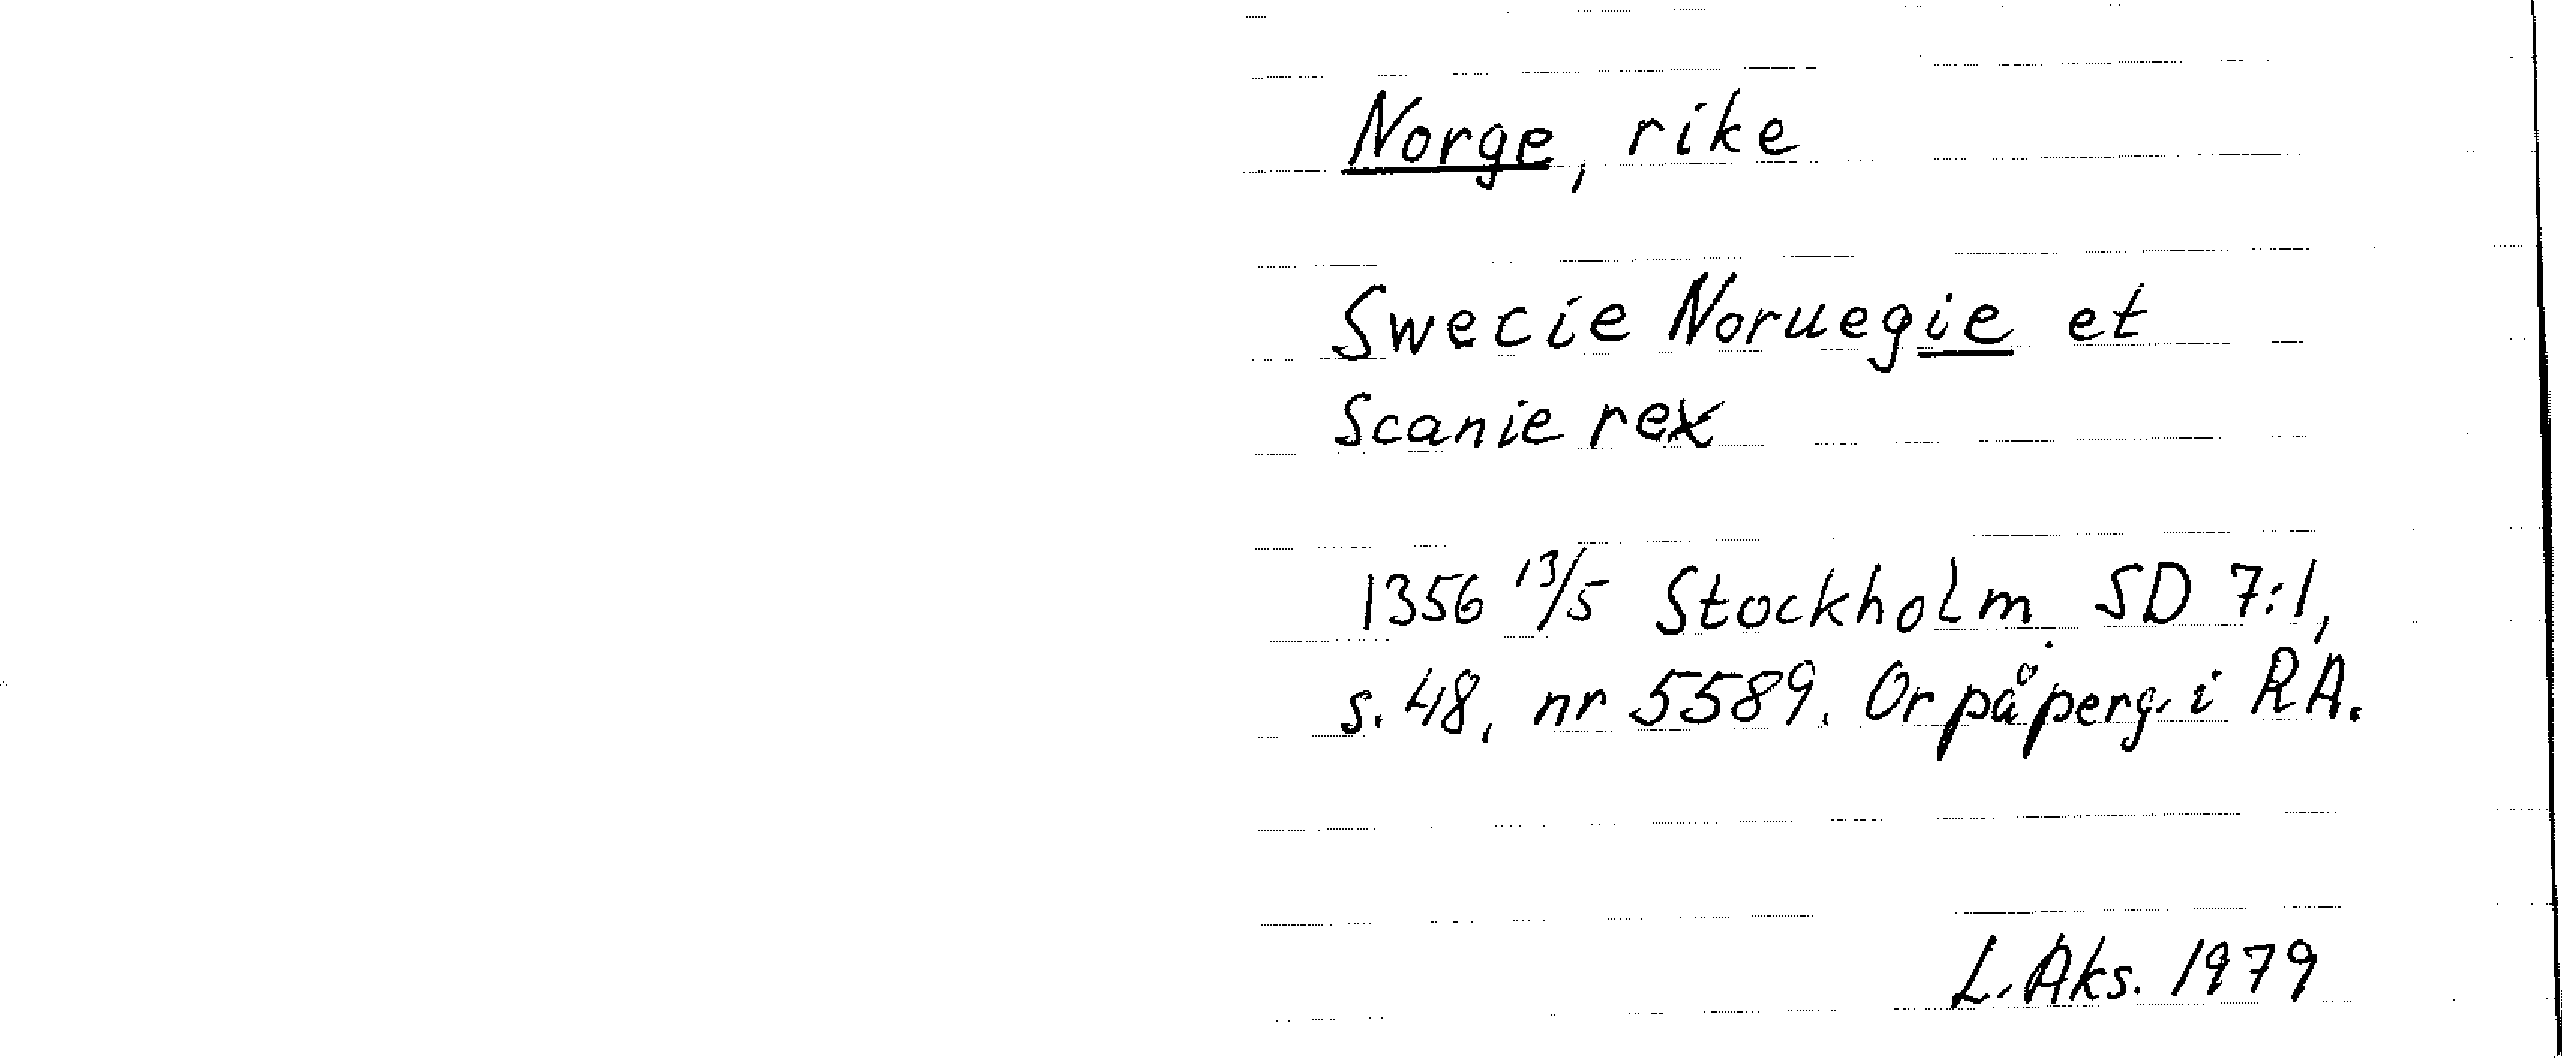 Norge, rike
Swecie Noruegie et
Scanie rex
1356 13/5 Stockholm. SD 7:1,
s. 48, nr 5589. Or på perg. i RA.
L. Aks. 1979